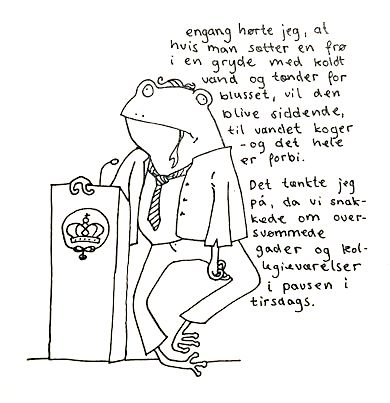 engang hørte jeg, at
hvis man sætter en frø
i en gryde med koldt
vand og tænder for
blusset, vil den
blive siddende,
til vandet koger
- og det hele
er forbi.
Det tænkte jeg
på, da vi snak-
kede om over-
svømmede
gader og kol-
legieværelser
i pausen i
tirsdags.